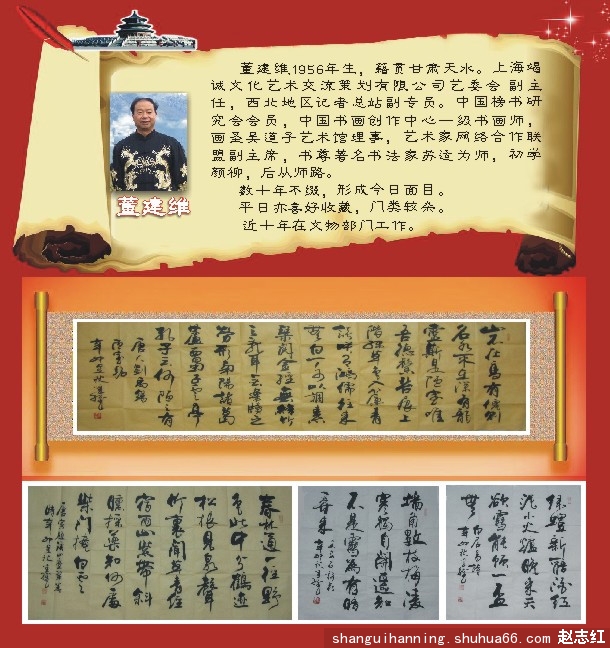 董建维1956年生，籍贯甘肃天水。上海竭
诚文化艺术交流策划有限公司艺委会副主
任，西北地区记者总站副专员。中国榜书研
究会会员，中国书画创作中心一级书画师，
画圣吴道子艺术馆理事，艺术家网络合作联
盟副主席，书尊著名书法家苏适为师，初学
颜柳，后从师路。
数十年不缀，形成今日面目。
平日亦喜好收藏，门类较杂。
近十年在文物部门工作。
董建维
山不在高有仙则
名水不在深有龙
灵斯是陋室唯
吾德馨苔痕上
阶绿草色入帘青
谈笑有鸿儒往来
无白丁可以调素
琴阅金经无丝竹
之乱耳无案牍之
劳形南阳诸葛
庐西蜀子云亭
孔子云何陋之有
唐人刘禹锡
陋室铭
辛卯
春林通一径野
色此中分鹤迹
松根见泉声
竹裏闻草青经
宿雨山紫带斜
曛採药知何处
柴门掩白云
墙角数枝梅凌
寒独自开遥知
不是雪为有暗
香来
绿蚁新醅酒红
泥小火炉晚来天
欲雪能饮一杯
无
白居易诗
shanguihanning.shuhua66.com 赵志红